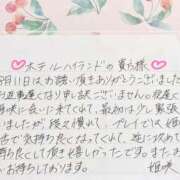 ホテルハイランドの貴方様
9月11日はお誘い頂きありがとうございました
なり申し訳ございません。夜遅く
咲に会いに来てくれて、最初は少し緊張
いましたが段々慣れて、プレイでは姫
舌で気持ち良くなってくれて、逆に攻めて
持ち良くして頂き嬉しかったです。また
お願いします。 姫咲